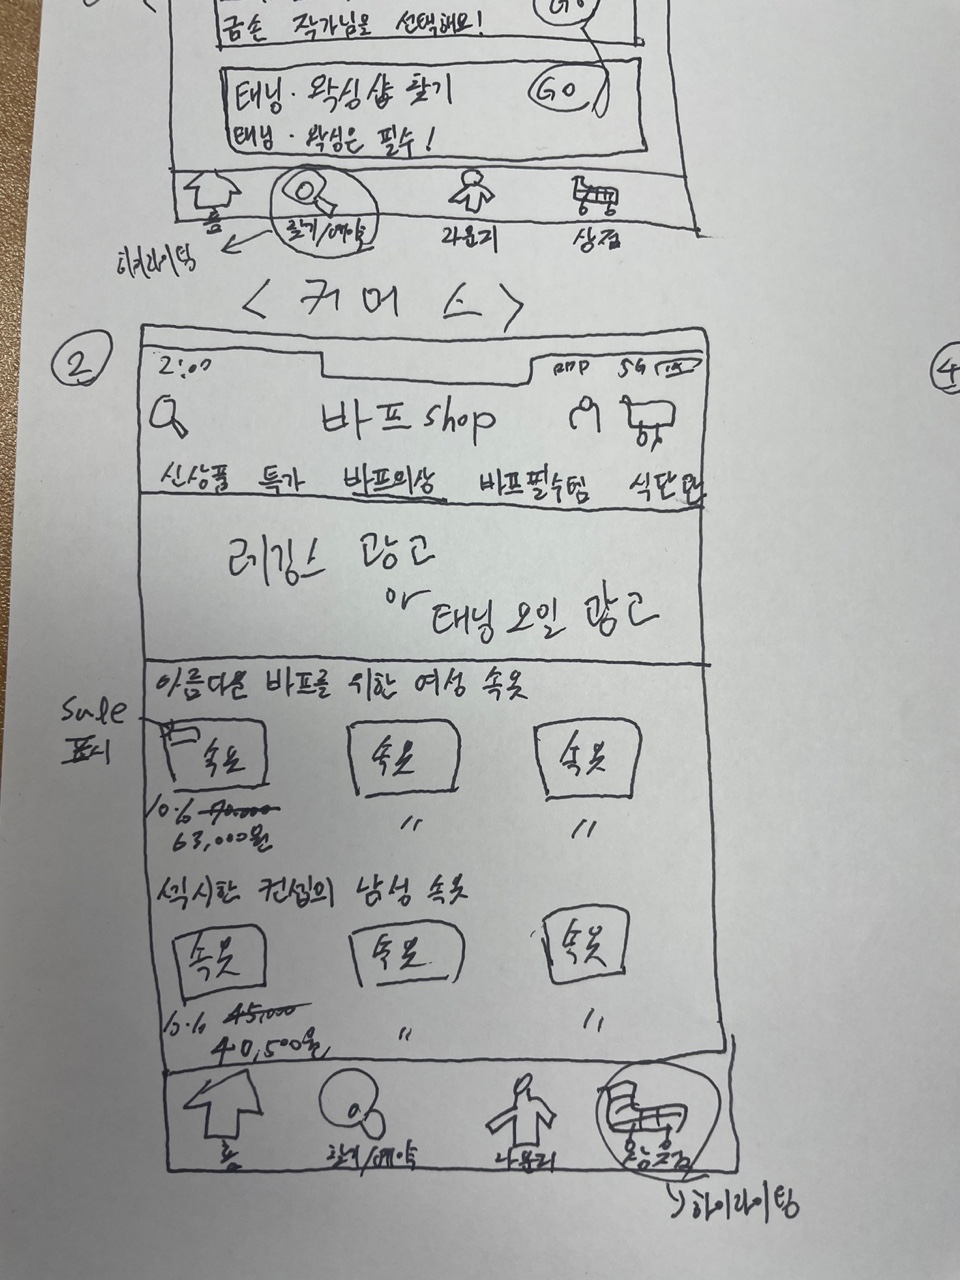 금손 작가님을 선택해요!
Go
태닝·왁싱샵 찾기
Go
태닝·왁싱은 필수!
홈 찾기/예약 라운지 상점
하이라이팅
<커머스>
②
2:00 5G
바프 shop
신상품 특가 바프의상 바프필수템 식단관
레깅스 광고
or
태닝 오일 광고
아름다운 바프를 위한 여성 속옷
Sale
표시
속옷 속옷 속옷
10% 70,000 〃 〃
63,000원
섹시한 컨셉의 남성 속옷
속옷 속옷 속옷
10% 45,000 〃 〃
40,500원
홈 찾기/예약 라운지
하이라이팅
④